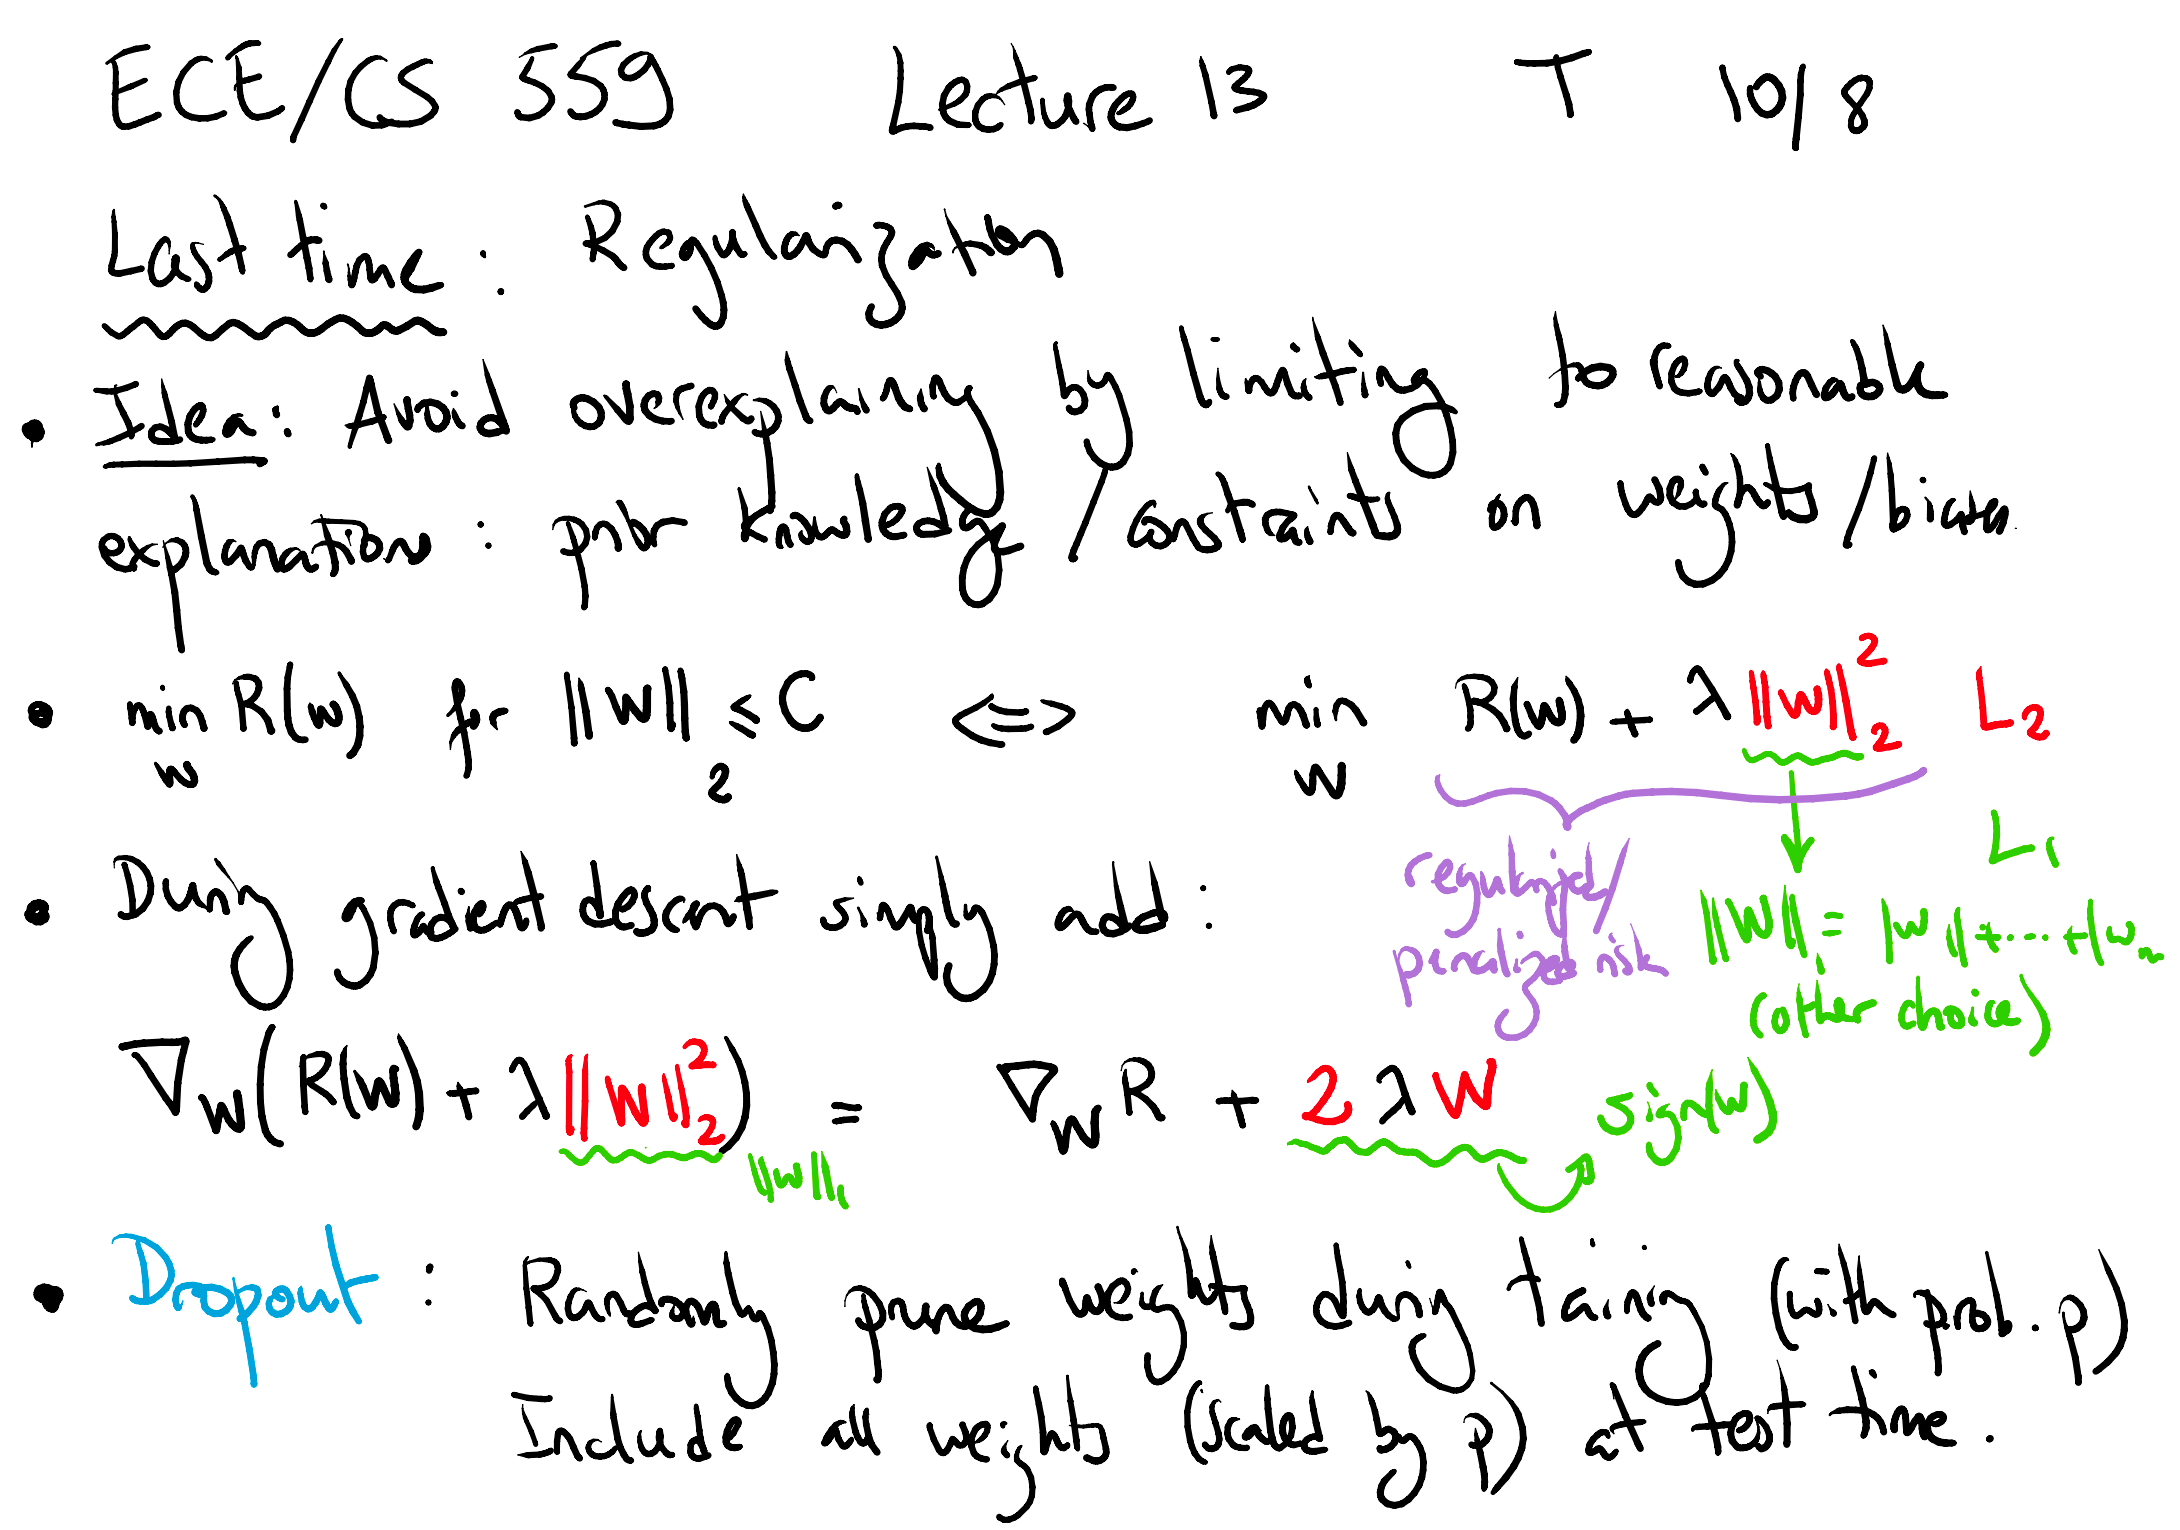 ECE/CS 559 Lecture 13 T 10/8
Last time: Regularization
• Idea: Avoid overexplaining by limiting to reasonable
explanations: prior knowledge/constraints on weights/biases.
• min_w R(w) for ||W||_2 ≤ C <=> min_w R(w) + λ||w||_2^2 L_2
L_1
• During gradient descent simply add:
regularized/
penalized risk
||W||_1 = |w_1|+...+|w_n
(other choice)
∇_W(R(W) + λ||W||_2^2) = ∇_W R + 2λW sign(w)
||w||_1
• Dropout: Randomly prune weights during taining (with prob. p)
Include all weights (scaled by p) at test time.